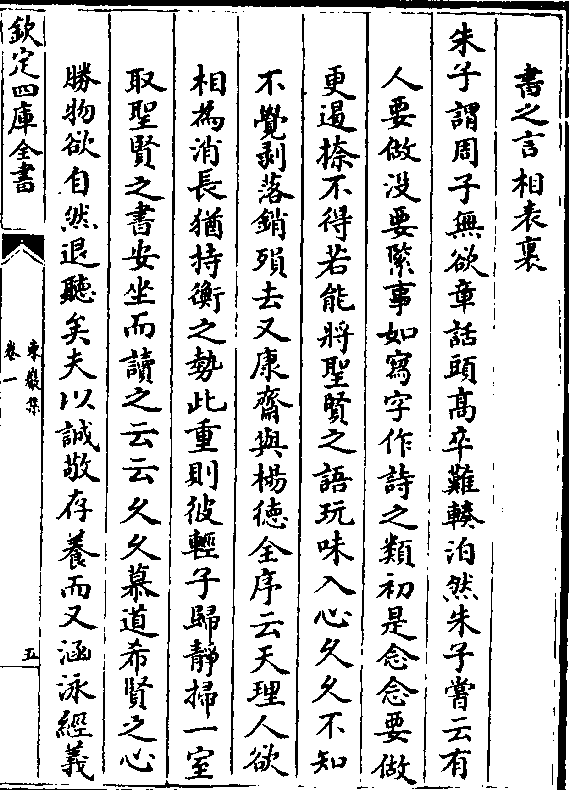 書之言相表裏
朱子謂周子無欲章話頭髙卒難輳泊然朱子嘗云有
人要做没要緊事如寫字作詩之類初是念念要做
更遏捺不得若能將聖賢之語玩味入心久久不知
不覺剥落銷殞去又康齋與楊徳全序云天理人欲
相為消長猶持衡之勢此重則彼輕子歸靜掃一室
取聖賢之書安坐而讀之云云久久慕道希賢之心
勝物欲自然退聽矣夫以誠敬存養而又涵泳經義
欽定四庫全書
東巖集
卷一
五